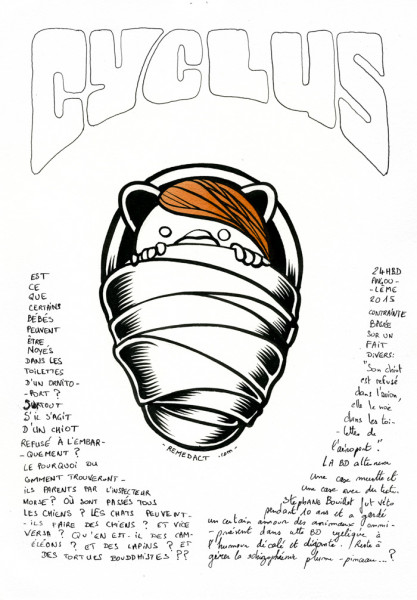 CYCLUS
EST
CE
QUE
CERTAINS
BÉBÉS
PEUVENT
ÊTRE
NOYÉS
DANS LES
TOILETTES
D'UN ORNITO-
-PORT ?
SURTOUT
S'IL S'AGIT
D'UN CHIOT
REFUSÉ À L'EMBAR-
-QUEMENT ?
LE POURQUOI DU
COMMENT TROUVERONT-
ILS PARENTS PAR L'INSPECTEUR
MORSE ? OÙ SONT PASSÉS TOUS
LES CHIENS ? LES CHATS PEUVENT-
-ILS FAIRE DES CHIENS ? ET VICE
VERSA ? QU'EN EST-IL DES CAM-
ÉLÉONS ? ET DES LAPINS ? ET
DES TORTUES BOUDDHISTES ??
- REMEDACT .com -
24HBD
ANGOU-
-LÊME
2015
CONTRAINTE
BASÉE
SUR UN
FAIT
DIVERS:
"Son chiot
est refusé
dans l'avion,
elle le noie
dans les toi-
-lettes de
l'aéroport".
LA BD alternera
une case muette et
une case avec du texte.
Stéphane Bouillot fut véto
pendant 10 ans et a gardé
un certain amour des animaux omni-
-présent dans cette BD cyclique à
l'humour décalé et déjanté. Reste à
gérer la schizophrénie plume-pinceau...?